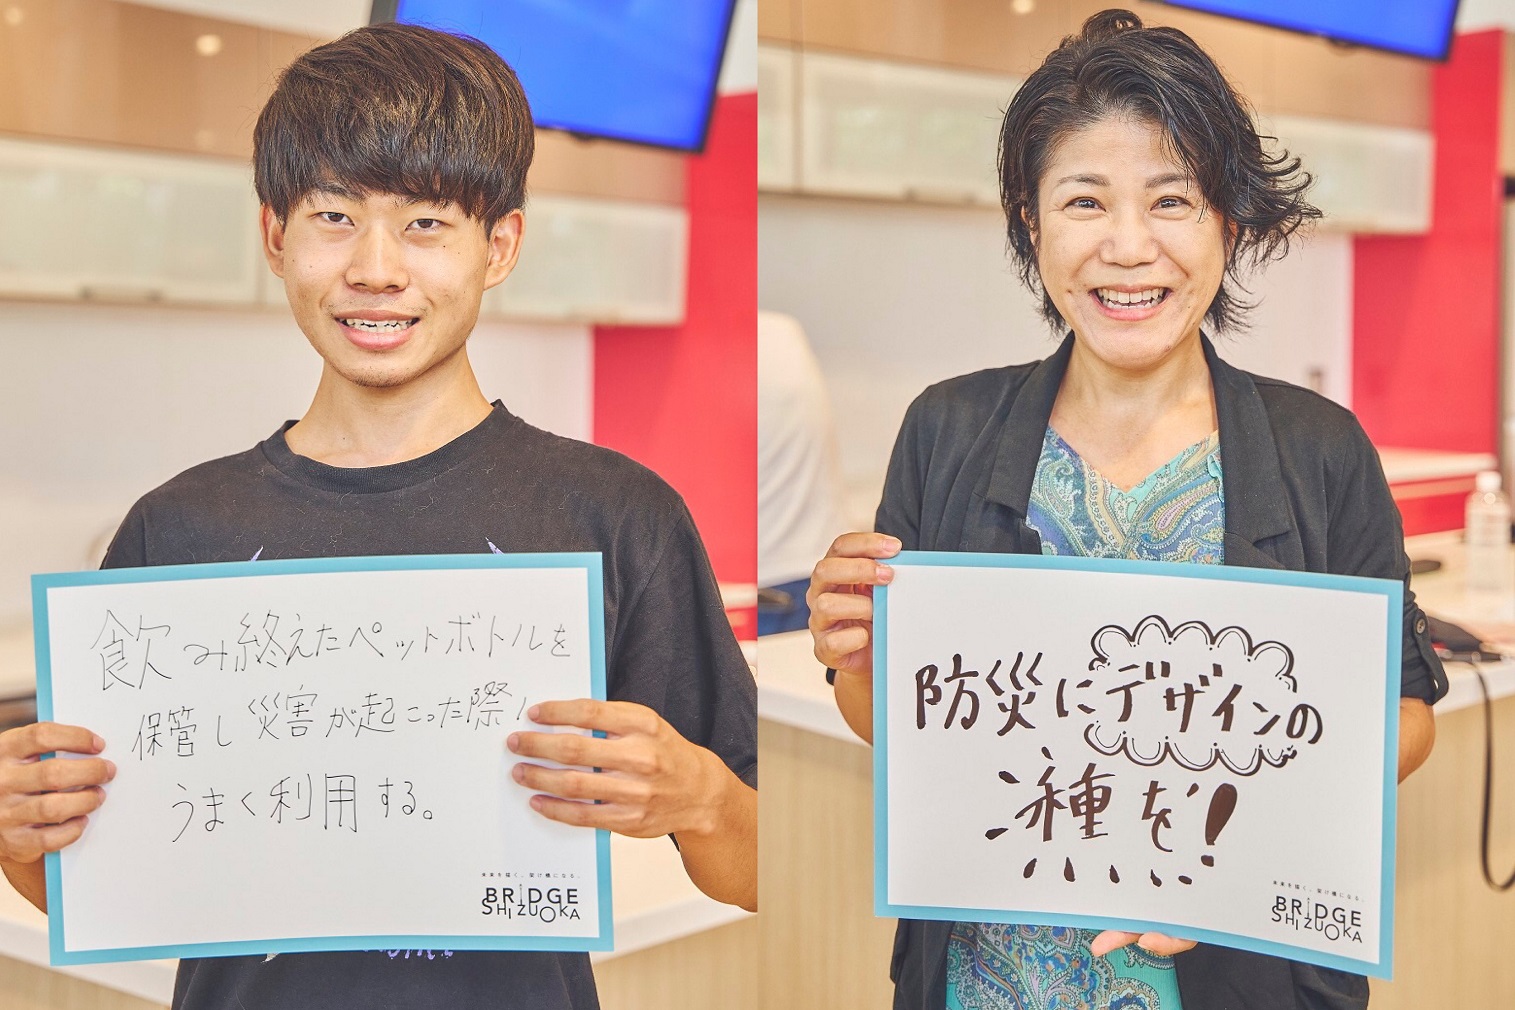 飲み終えたペットボトルを
保管し災害が起こった際、
うまく利用する。
未来を描く。架け橋になる。
BRIDGE
SHIZUOKA
防災にデザインの
種を!
未来を描く。架け橋になる。
BRIDGE
SHIZUOKA